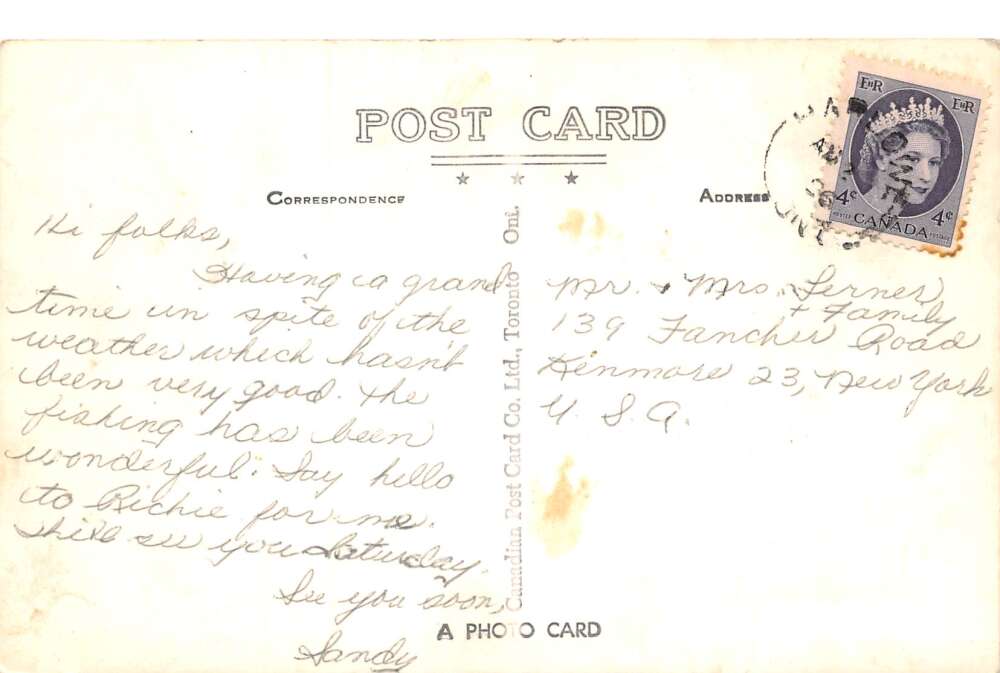 POST CARD
CORRESPONDENCE
ADDRESS
Hi folks,
Having a grand
time in spite of the
weather which hasn't
been very good. The
fishing has been
wonderful. Say hello
to Richie for me.
see you Saturday.
See you soon,
Sandy
Canadian Post Card Co. Ltd., Toronto Ont.
A PHOTO CARD
EIIR
EIIR
4¢
4¢
POSTES CANADA POSTAGE
ONT
Mr. & Mrs. Lerner
+ Family
139 Fancher Road
Kenmore 23, New York
U. S. A.